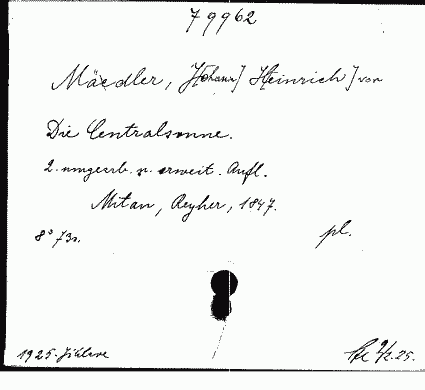 79962
Mäedler, J[ohann] H[einrich] von
Die Centralsonne.
2. umgearb. u. erweit. Aufl.
Mitau, Reyher, 1847.
8° 73s. pl.
1925. Jihlava 9/2.25.